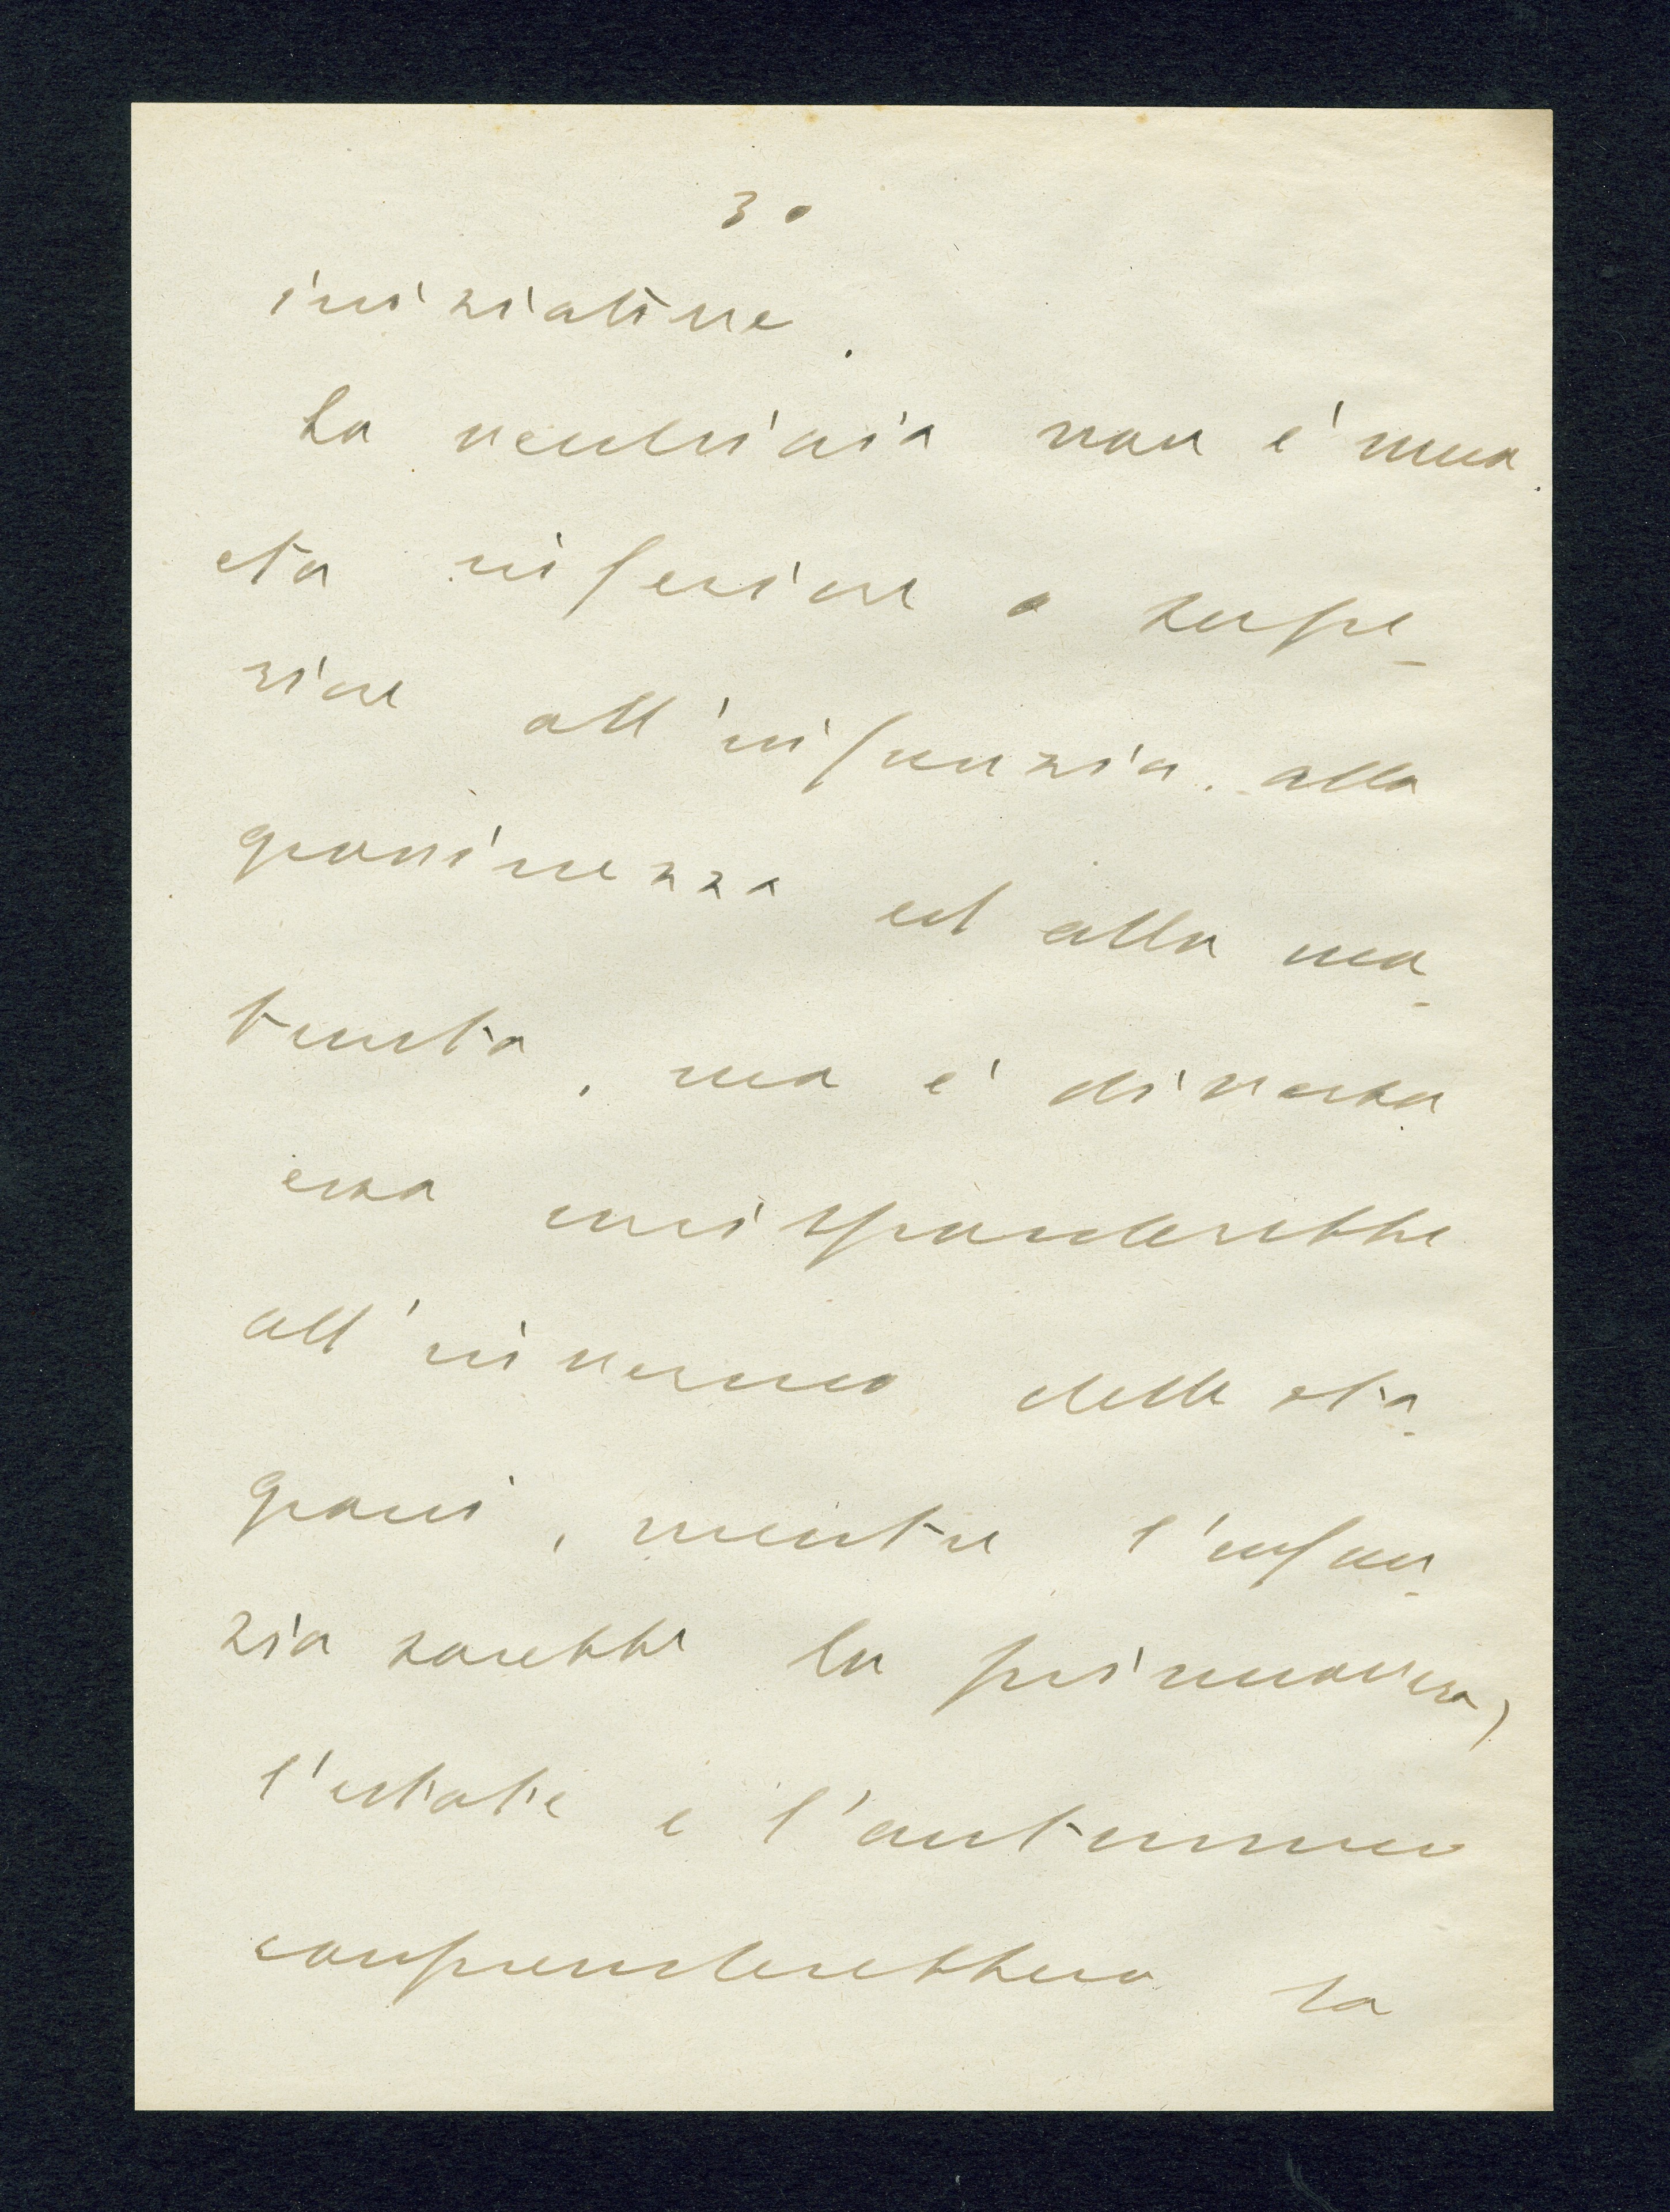 30
iniziative.
La vecchiaia non è una
età inferiore o supe-
riore all'infanzia, alla
giovinezza ed alla ma-
turità, ma è diversa
essa corrisponderebbe
all'inverno delle sta-
gioni, mentre l'infan-
zia sarebbe la primavera,
l'estate e l'autunno
comprenderebbero la